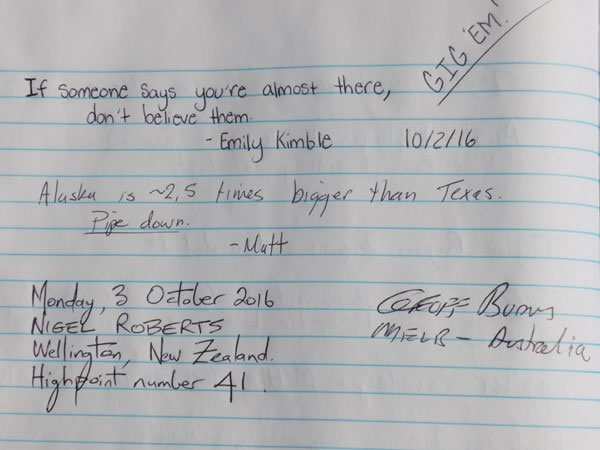 GIG 'EM!
If someone says you're almost there,
don't believe them.
- Emily Kimble 10/2/16
Alaska is ~2,5 times bigger than Texas.
Pipe down.
- Matt
Monday, 3 October 2016
NIGEL ROBERTS
Wellington, New Zealand.
Highpoint number 41.
GEOFF Burns
MELB - Australia